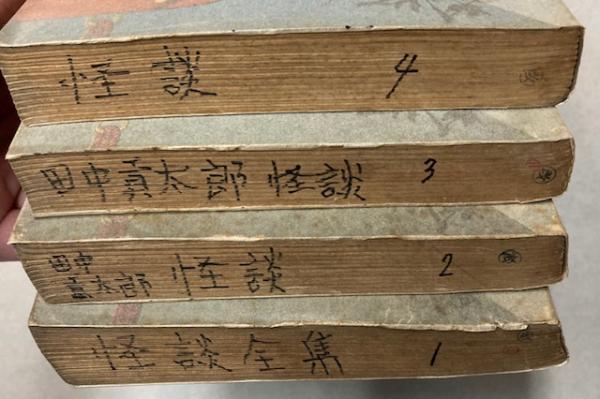 怪談 4
田中貢太郎 怪談 3
田中
貢太郎 怪談 2
怪談全集 1